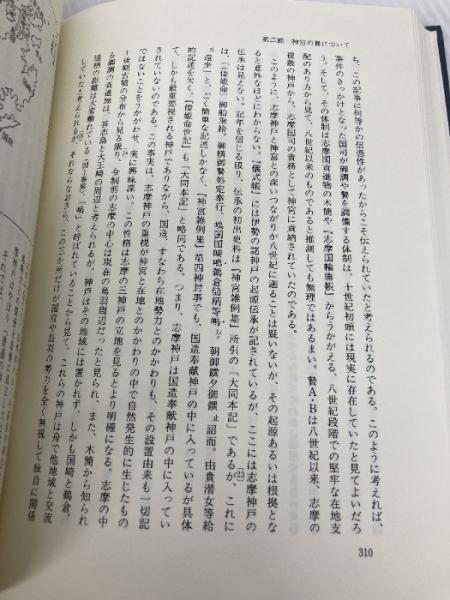 第二節　神宮の贄について
ち、この記事に何等かの伝遇性があったからこそ伝えられていたと考えられるのである。このように考えれば、
事件のきっかけとなった国司が御調や贄を調備する体制は、十世紀初頭には現実に存在していたと見てよいだろ
う。そして、その体制は志摩国貢進物の木簡や『志摩国輸庸帳』からうかがえる、八世紀段階での堅牢な在地支
配のあり方から見て、八世紀以来のものであると推測しても無理ではあるまい。贄A・Bは八世紀以来、志摩の
複数の神戸から、志摩国司の責務として神宮に貢納されていたのである。
このように、志摩神戸と神宮との深いつながりが八世紀に遡ることは疑いないが、その起源あるいは根拠とな
ると意外なほどにわからない。『儀式帳』には伊勢の諸神戸の起源伝承が記されているが、ここには志摩神戸の
伝承は見えない。記年を信じる限り、伝承の初出史料は『神宮雑例集』所引の『大同本記』であるが、これに
は、「(倭姫命)御船乗給、御橫御贄処定奉行、嶋国国崎嶋鵜倉慥柄等嶋、朝御饌夕御饌止詔而、由貴潜女等給
還来」と、ごく簡単な記述しかなく、『神宮雑例集』第四神封事でも、国造奉献神戸の中に入っているが具体
的記述を欠く。『倭姫命世記』も『大同本記』と略同である。つまり、志摩神戸は国造奉献神戸の中に入ってい
て、しかも最重要視される神戸でありながら、国造、すなわち在地勢力とのかかわりも、その設置由来も一切記
されていないのである。この事実は、志摩神戸の重視が神宮と在地とのかかわりの中で自然発生的に生じたもの
ではないことをうかがわせ、実に興味深い。この性格は志摩の三神戸の立地を見るとより明確になる。志摩の中
で後期古墳の分布から見る
る御調の貢進郷は、答志島と大王崎の周辺と考えられるが、神戸はその地域には置かれず、しかも国崎と鵜倉、
慥柄の距離は大変離れている
していたと考えられるが、それ
(23)
310